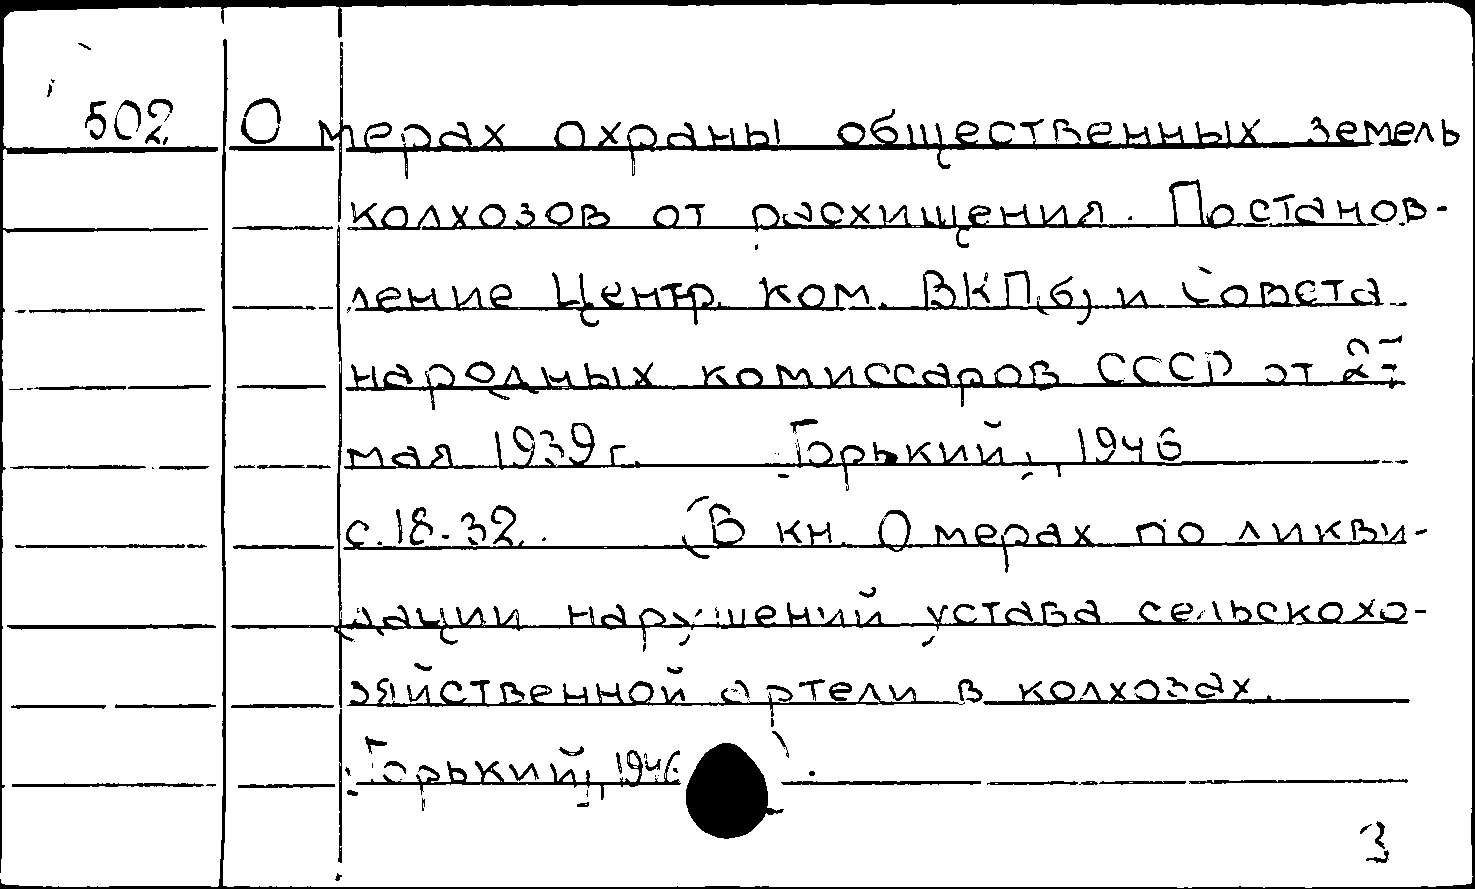 502 О мерах охраны общественных земель
колхозов от расхищения. Постанов-
ление Центр. ком. ВКП(б) и Совета
народных комиссаров СССР от 27
мая 1939 г. [Горький], 1946
с. 18-32. (В кн. О мерах по ликви-
дации нарушений устава сельскохо-
зяйственной артели в колхозах.
[Горький], 1946).
3